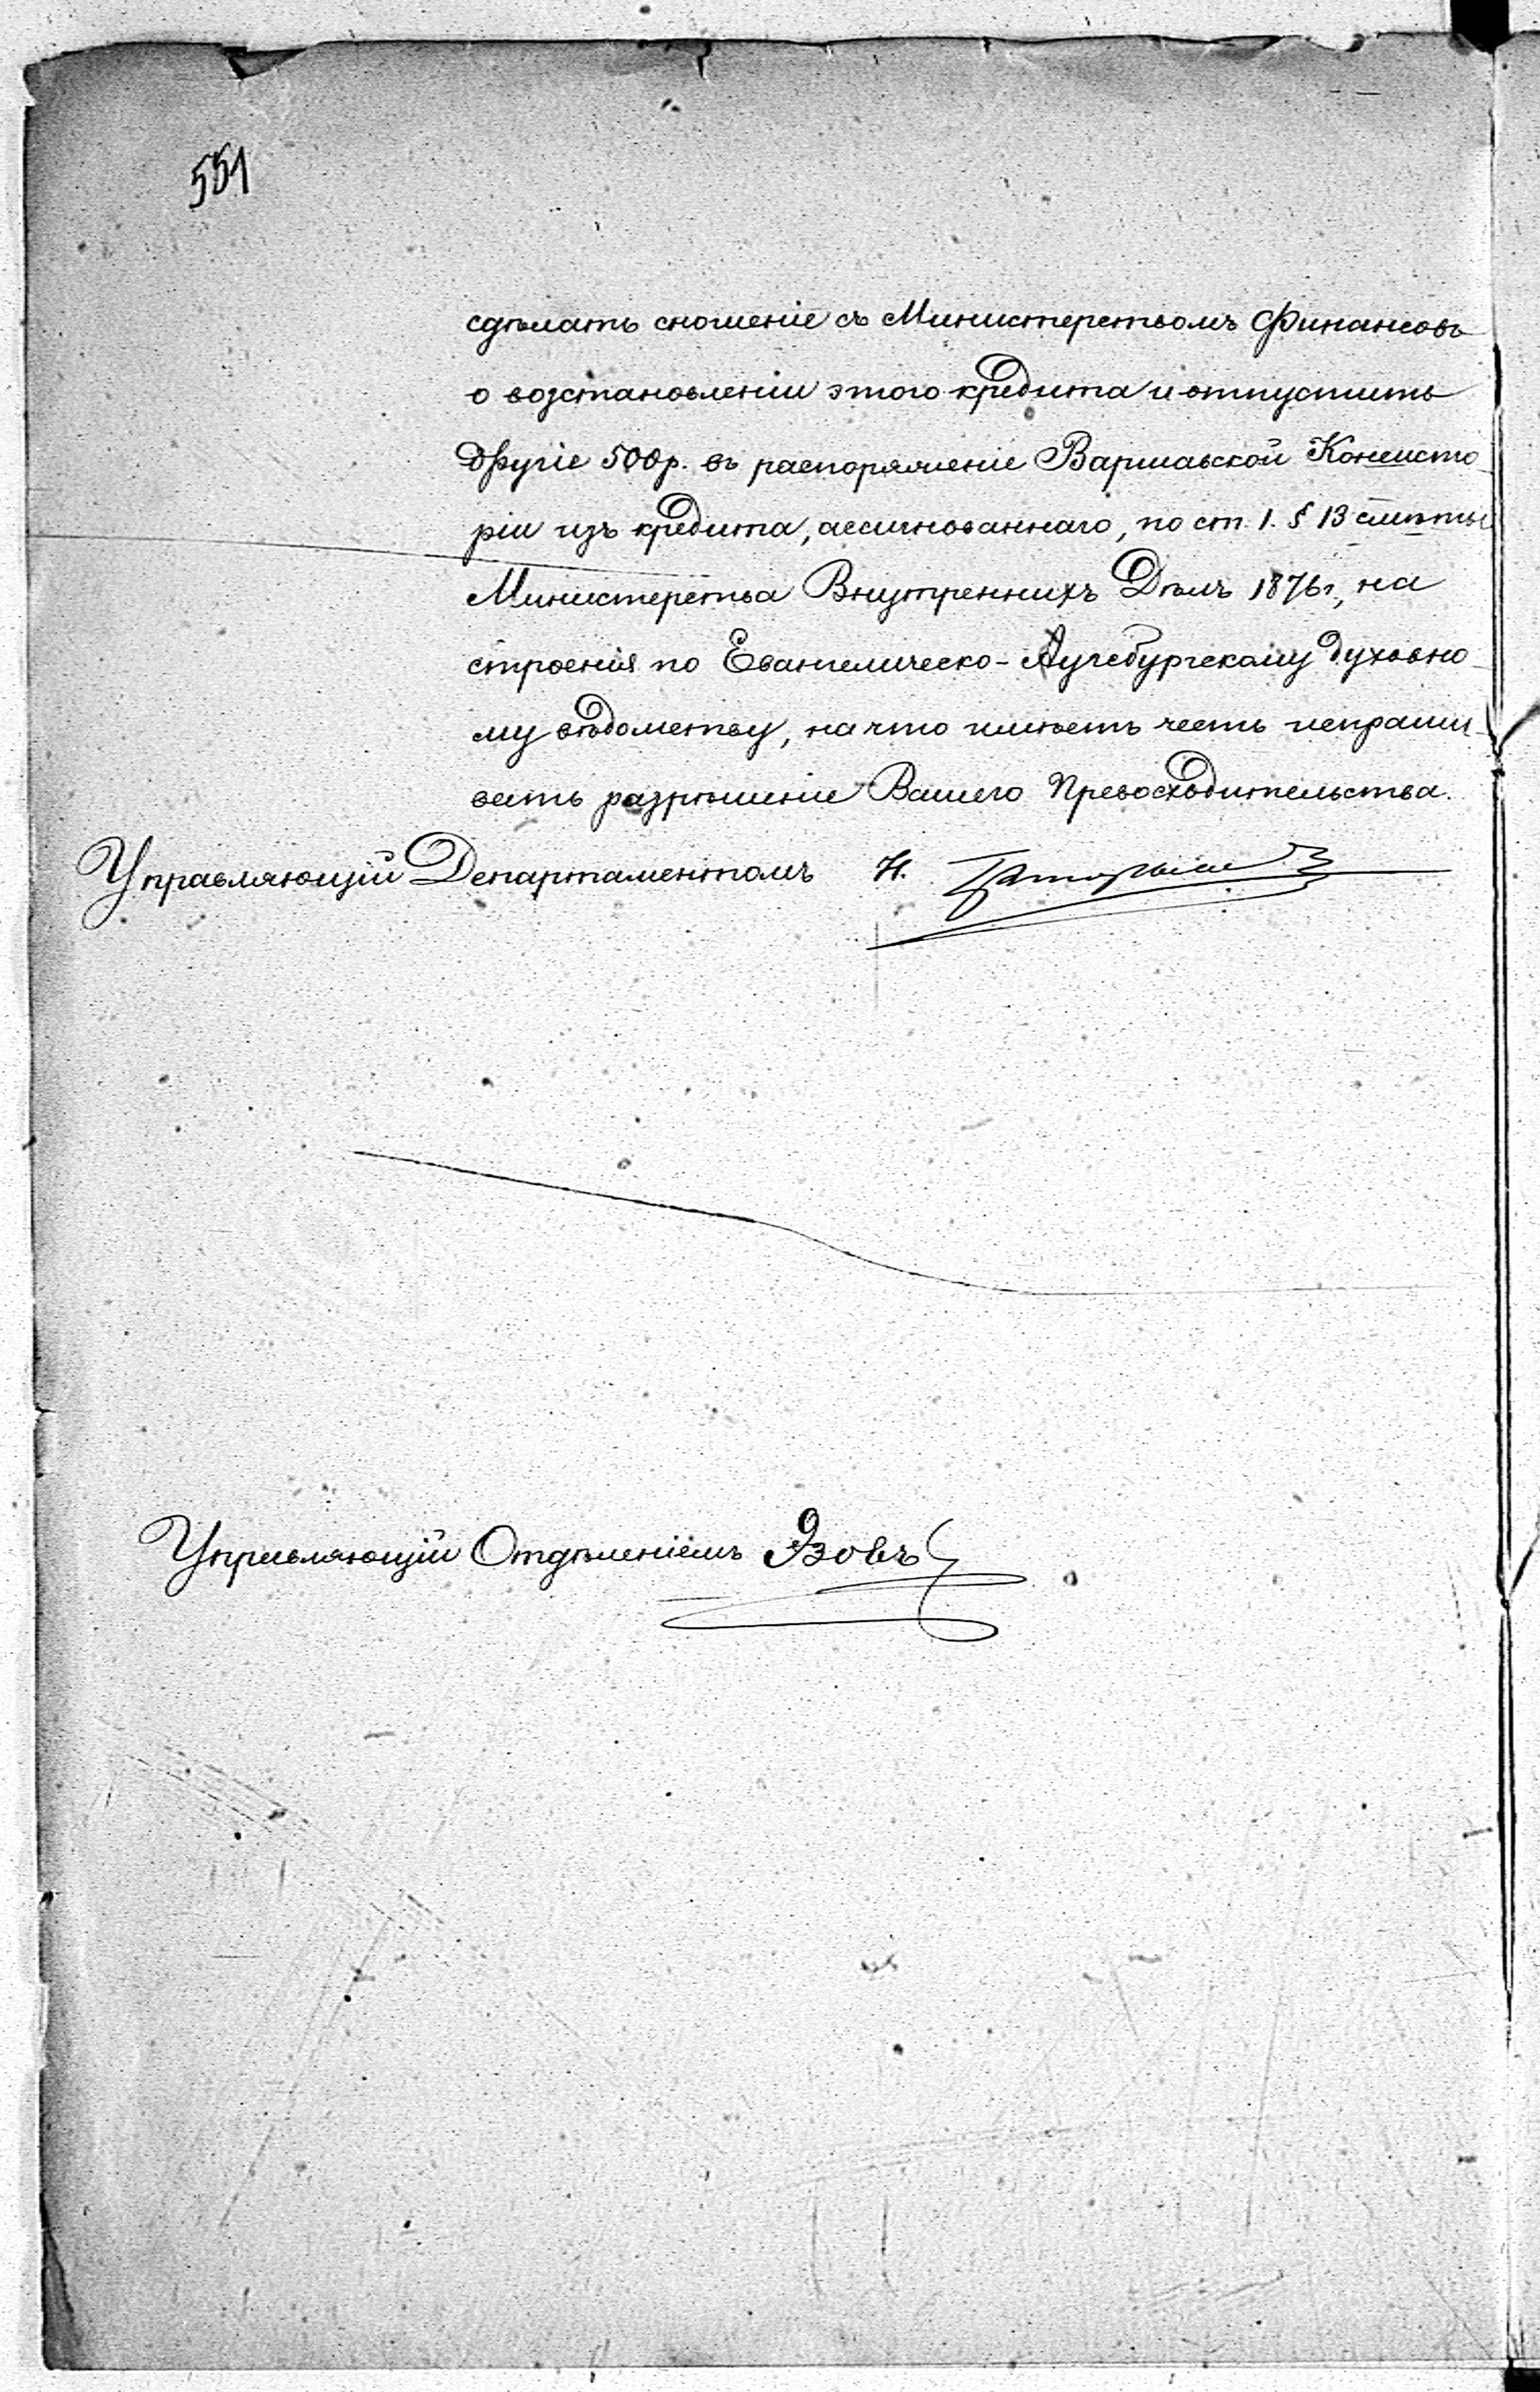 551
сдѣлать сношеніе съ Министерствомъ Финансовъ
о возстановленіи этого кредита и отпустить
другіе 500р. въ распоряженіе Варшавской Консисто-
ріи изъ кредита, ассигнованнаго, по ст. 1. § 13 смѣты
Министерства Внутреннихъ Дѣлъ 1876г., на
строенія по Евангелическо-Аугсбургскому духовно-
му вѣдомству, на что имѣетъ честь испраши-
вать разрѣшеніе Вашего Превосходительства.
Управляющій Департаментомъ Н.
Управляющій Отдѣленіемъ Эзовъ